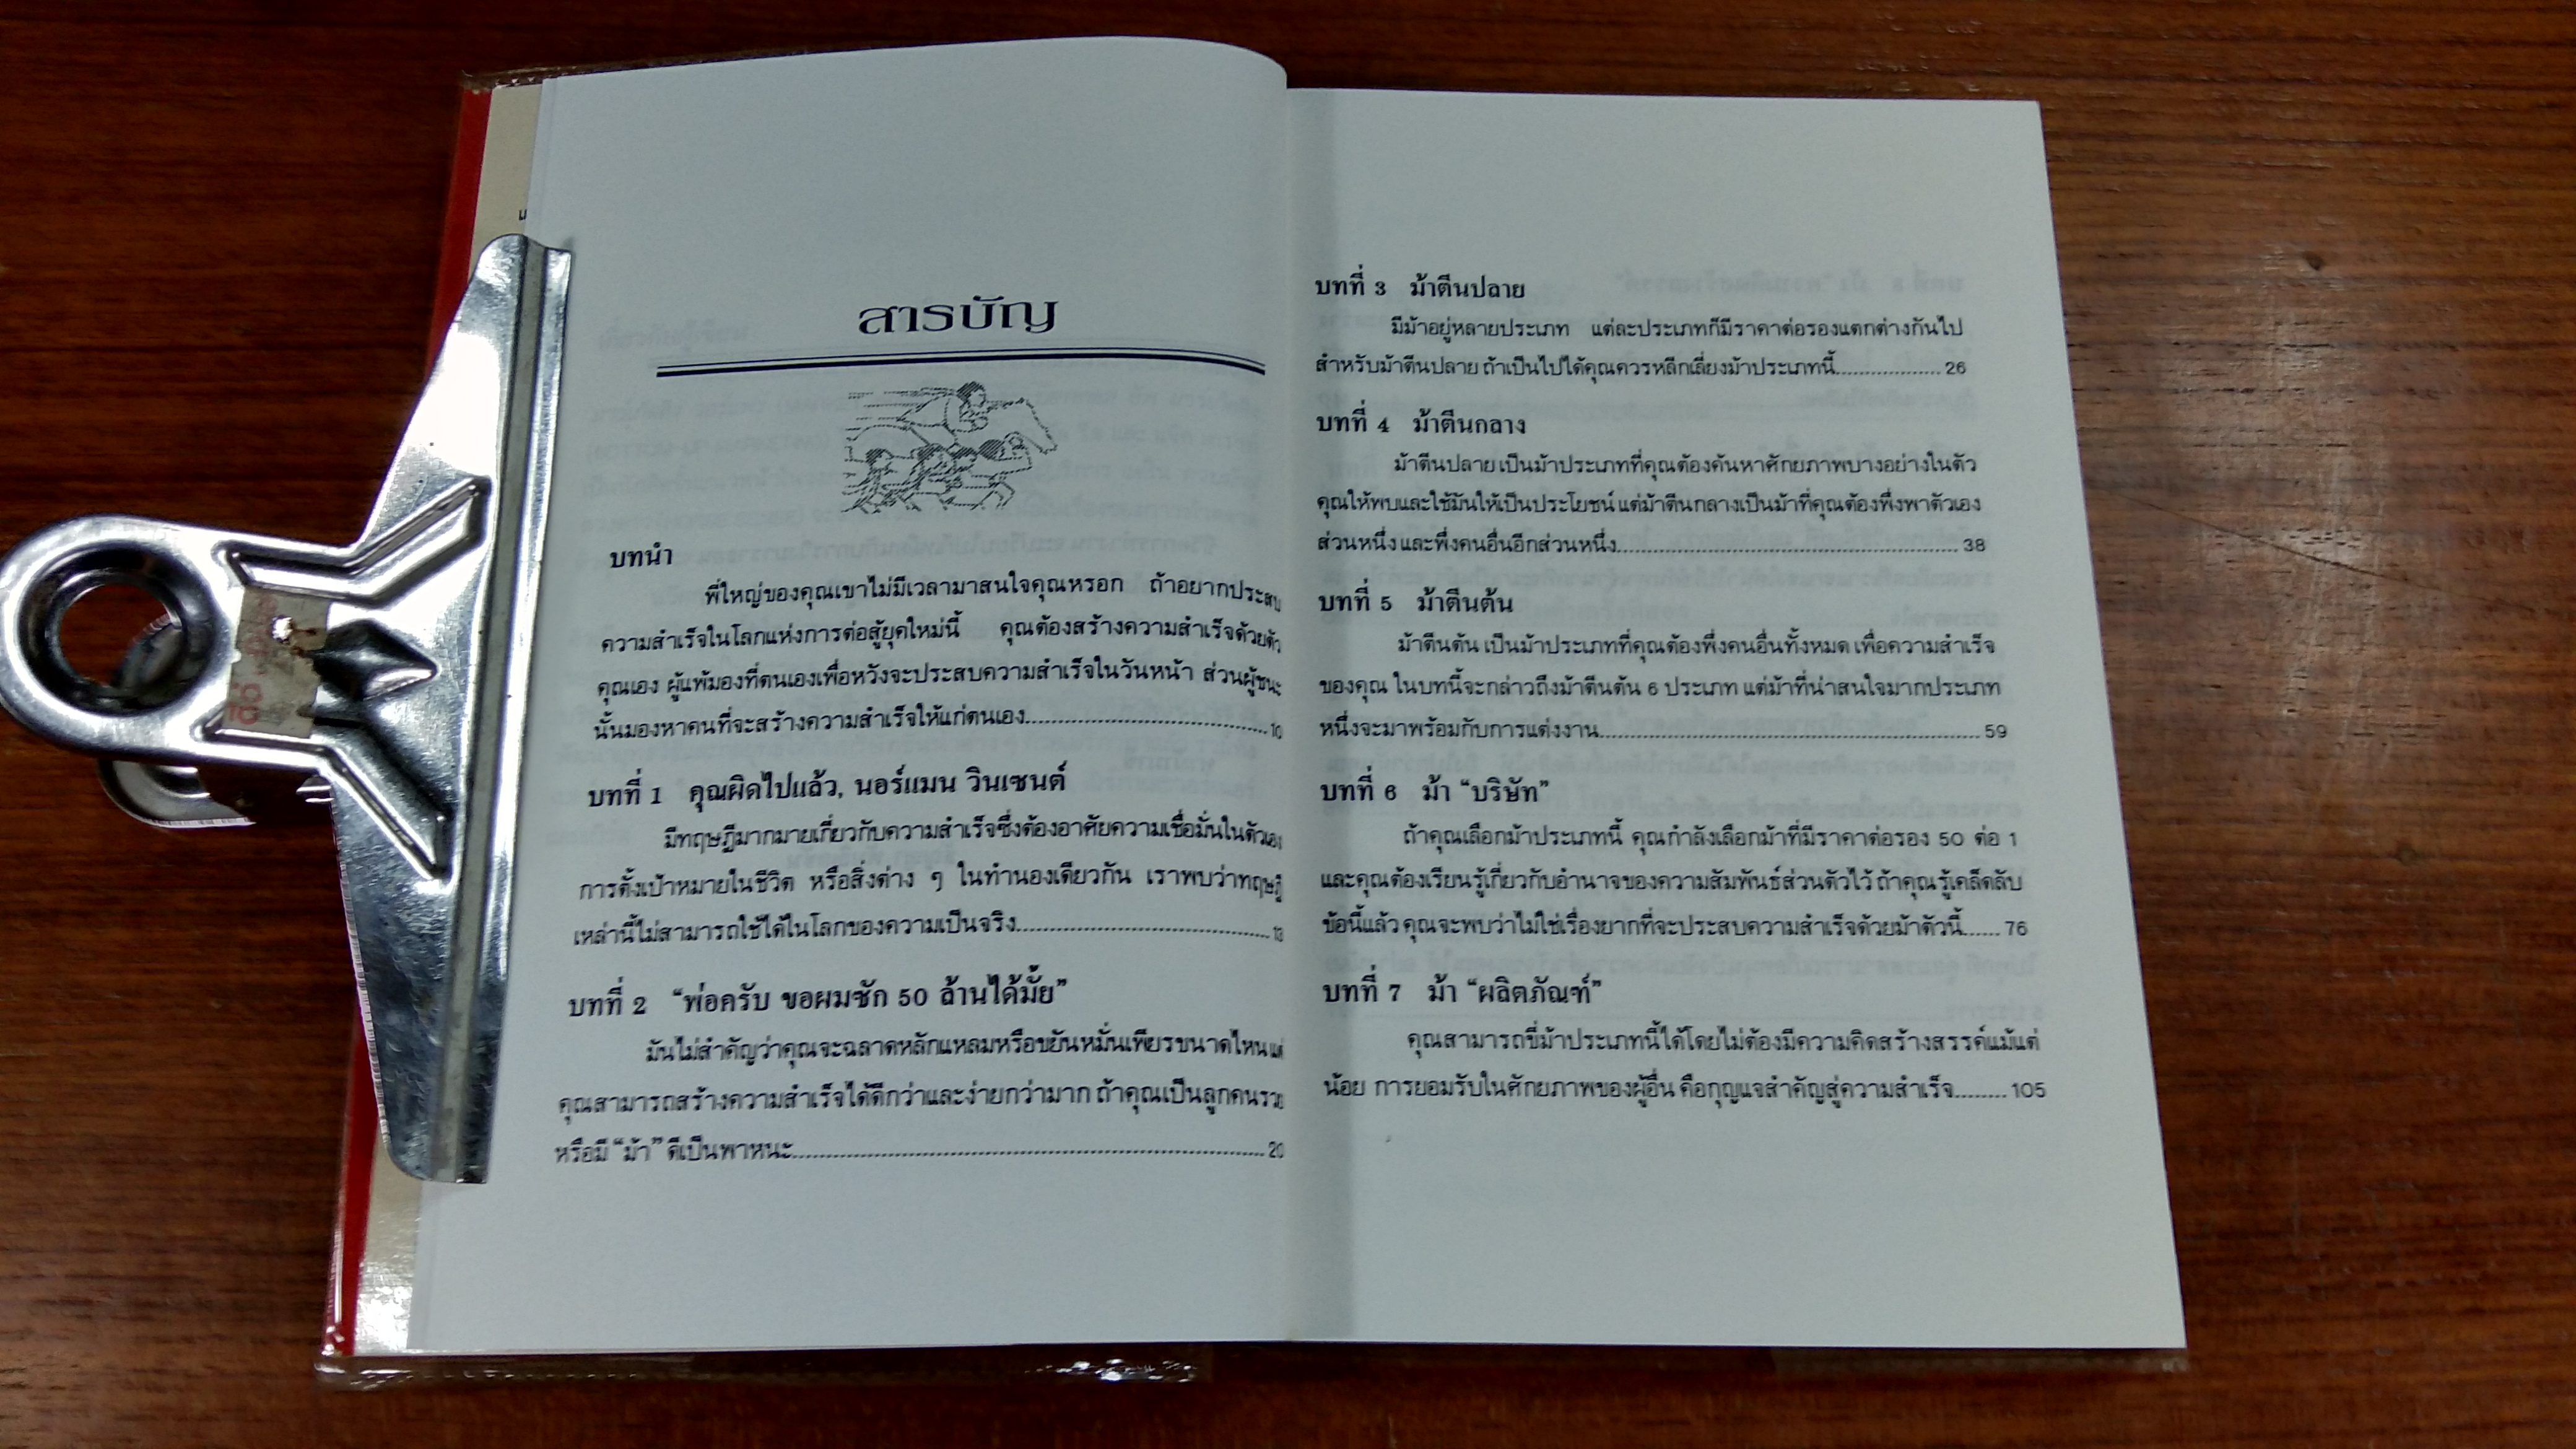 สารบัญ
บทนำ
พี่ใหญ่ของคุณเขาไม่มีเวลามาสนใจคุณหรอก ถ้าอยากประสบ
ความสำเร็จในโลกแห่งการต่อสู้ยุคใหม่นี้ คุณต้องสร้างความสำเร็จด้วยตัว
คุณเอง ผู้แพ้มองที่ตนเองเพื่อหวังจะประสบความสำเร็จในวันหน้า ส่วนผู้ชนะ
นั้นมองหาคนที่จะสร้างความสำเร็จให้แก่ตนเอง.......................................10
บทที่ 1 คุณผิดไปแล้ว, นอร์แมน วินเซนต์
มีทฤษฎีมากมายเกี่ยวกับความสำเร็จซึ่งต้องอาศัยความเชื่อมั่นในตัวเอง
การตั้งเป้าหมายในชีวิต หรือสิ่งต่าง ๆ ในทำนองเดียวกัน เราพบว่าทฤษฎี
เหล่านี้ไม่สามารถใช้ได้ในโลกของความเป็นจริง.......................................13
บทที่ 2 “พ่อครับ ขอผมซัก 50 ล้านได้มั้ย”
มันไม่สำคัญว่าคุณจะฉลาดหลักแหลมหรือขยันหมั่นเพียรขนาดไหน แต่
คุณสามารถสร้างความสำเร็จได้ดีกว่าและง่ายกว่ามาก ถ้าคุณเป็นลูกคนรวย
หรือมี “ม้า” ดีเป็นพาหนะ.......................................20
บทที่ 3 ม้าตีนปลาย
มีม้าอยู่หลายประเภท แต่ละประเภทก็มีราคาต่อรองแตกต่างกันไป
สำหรับม้าตีนปลาย ถ้าเป็นไปได้คุณควรหลีกเลี่ยงม้าประเภทนี้................... 26
บทที่ 4 ม้าตีนกลาง
ม้าตีนปลาย เป็นม้าประเภทที่คุณต้องค้นหาศักยภาพบางอย่างในตัว
คุณให้พบและใช้มันให้เป็นประโยชน์ แต่ม้าตีนกลางเป็นม้าที่คุณต้องพึ่งพาตัวเอง
ส่วนหนึ่ง และพึ่งคนอื่นอีกส่วนหนึ่ง....................................... 38
บทที่ 5 ม้าตีนต้น
ม้าตีนต้น เป็นม้าประเภทที่คุณต้องพึ่งคนอื่นทั้งหมด เพื่อความสำเร็จ
ของคุณ ในบทนี้จะกล่าวถึงม้าตีนต้น 6 ประเภท แต่ม้าที่น่าสนใจมากประเภท
หนึ่งจะมาพร้อมกับการแต่งงาน....................................... 59
บทที่ 6 ม้า “บริษัท”
ถ้าคุณเลือกม้าประเภทนี้ คุณกำลังเลือกม้าที่มีราคาต่อรอง 50 ต่อ 1
และคุณต้องเรียนรู้เกี่ยวกับอำนาจของความสัมพันธ์ส่วนตัวไว้ ถ้าคุณรู้เคล็ดลับ
ข้อนี้แล้ว คุณจะพบว่าไม่ใช่เรื่องยากที่จะประสบความสำเร็จด้วยม้าตัวนี้...... 76
บทที่ 7 ม้า “ผลิตภัณฑ์”
คุณสามารถขี่ม้าประเภทนี้ได้โดยไม่ต้องมีความคิดสร้างสรรค์แม้แต่
น้อย การยอมรับในศักยภาพของผู้อื่น คือกุญแจสำคัญสู่ความสำเร็จ......... 105